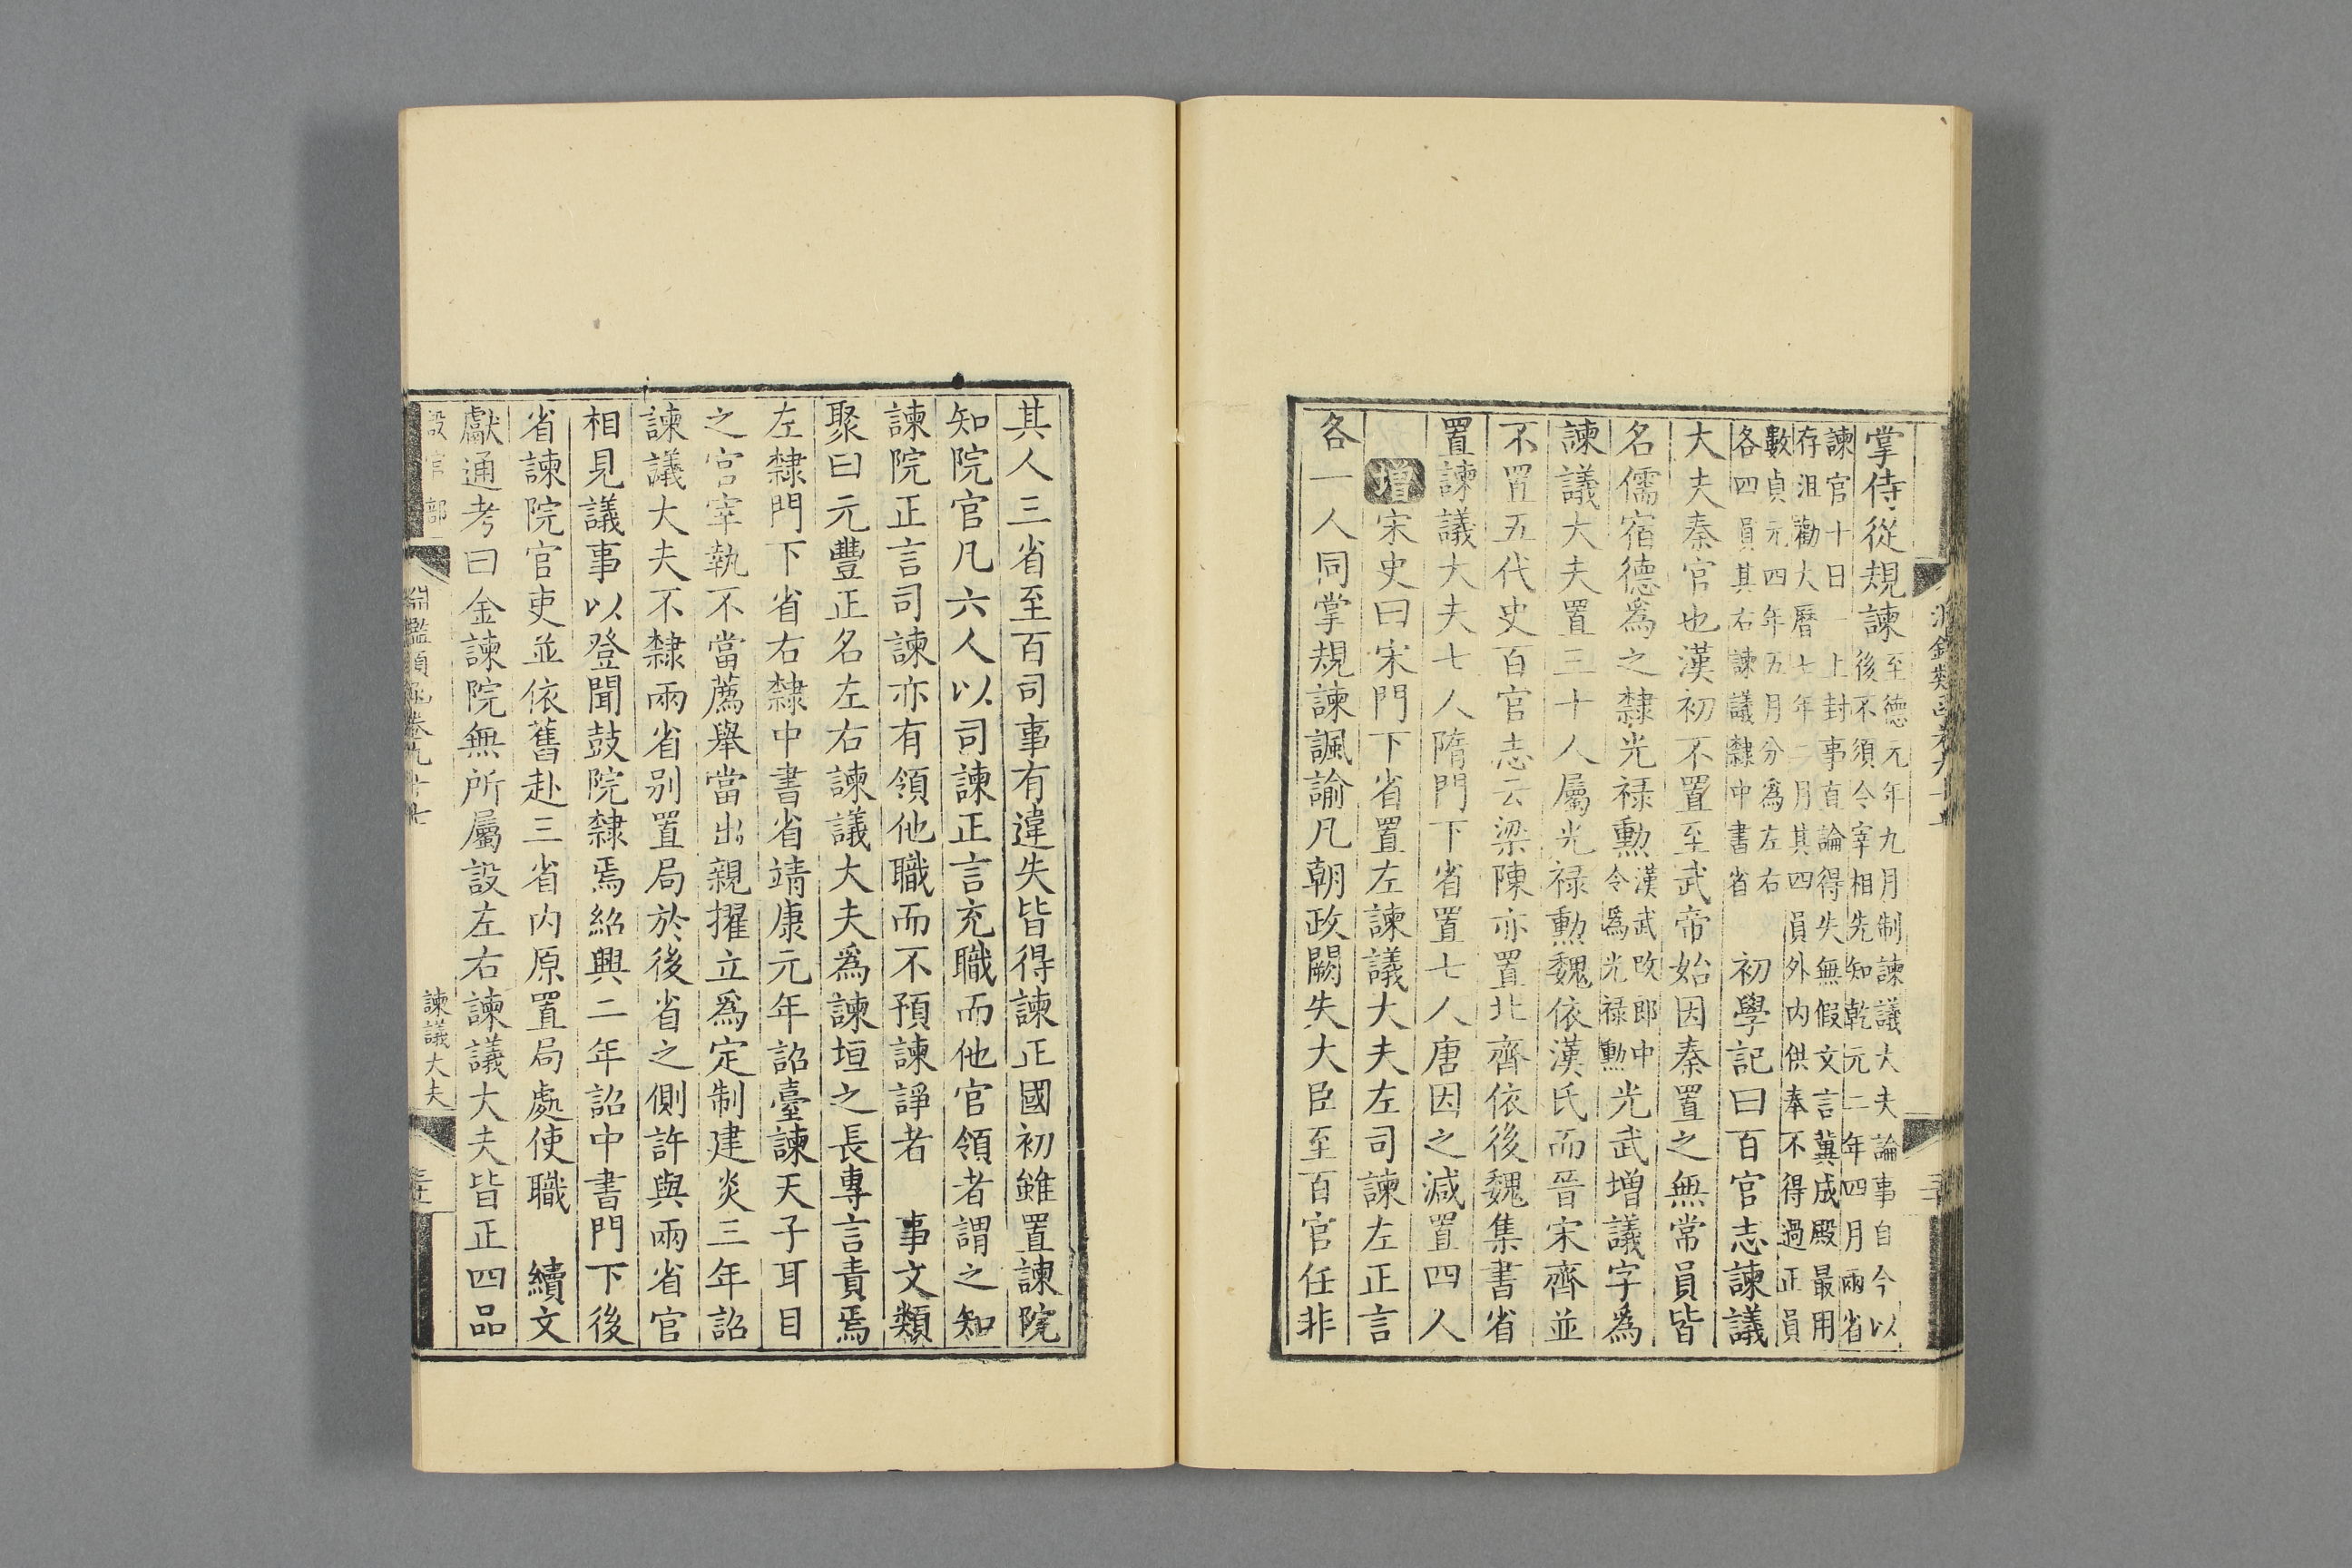 掌侍從規諫至德元年九月制諫議大夫論事自今以後不須令宰相先知乾元二年四月兩省
諫官十日一上封事直論得失無假文言冀成殿最用存沮勸大曆七年二月其四員外內供奉不得過正員
數貞元四年五月分爲左右各四員其右諫議隸中書省　初學記曰百官志諫議
大夫秦官也漢初不置至武帝始因秦置之無常員皆
名儒宿德爲之隸光祿勳漢武改郎中令爲光祿勳光武增議字爲
諫議大夫置三十人屬光祿勳魏依漢氏而晉宋齊並
不置五代史百官志云梁陳亦置北齊依後魏集書省
置諫議大夫七人隋門下省置七人唐因之減置四人
增宋史曰宋門下省置左諫議大夫左司諫左正言
各一人同掌規諫諷諭凡朝政闕失大臣至百官任非
其人三省至百司事有違失皆得諫正國初雖置諫院
知院官凡六人以司諫正言充職而他官領者謂之知
諫院正言司諫亦有領他職而不預諫諍者　事文類
聚曰元豐正名左右諫議大夫爲諫垣之長專言責焉
左隸門下省右隸中書省靖康元年詔臺諫天子耳目
之官宰執不當薦舉當出親擢立爲定制建炎三年詔
諫議大夫不隸兩省別置局於後省之側許與兩省官
相見議事以登聞鼓院隸焉紹興二年詔中書門下後
省諫院官吏並依舊赴三省內原置局處使職　續文
獻通考曰金諫院無所屬設左右諫議大夫皆正四品
設官部
淵鑑類函卷九十七
諫議大夫